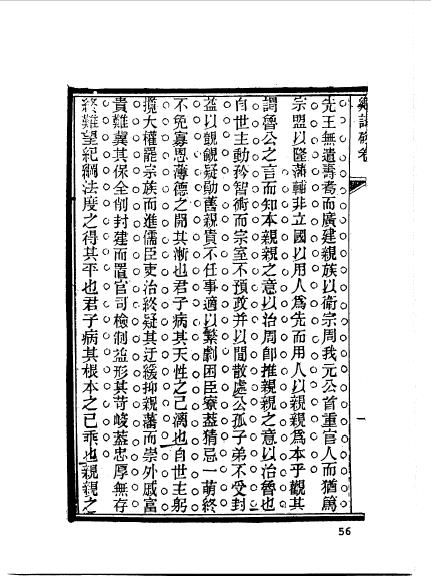 先王無遺壽耇而廣建親族以衛宗周我元公首重官人而猶篤
宗盟以隆藩輔非立國以用人爲先而用人以親親爲本乎觀其
謂魯公之言而知本親親之意以治周卽推親親之意以治魯也
自世主動矜智術而宗室不預政幷以閒散處公孤子弟不受封
益以覬覦疑勛舊親貴不任事適以繁劇困臣寮葢猜忌一萌終
不免寡恩薄德之開其漸也君子病其天性之已漓也自世主躬
攬大權罷宗族而進儒臣吏治終疑其迂緩抑親藩而崇外戚富
貴難冀其保全削封建而置官司檢制益形其苛峻葢忠厚無存
終難望紀綱法度之得其平也君子病其根本之已乖也親親之
一
56